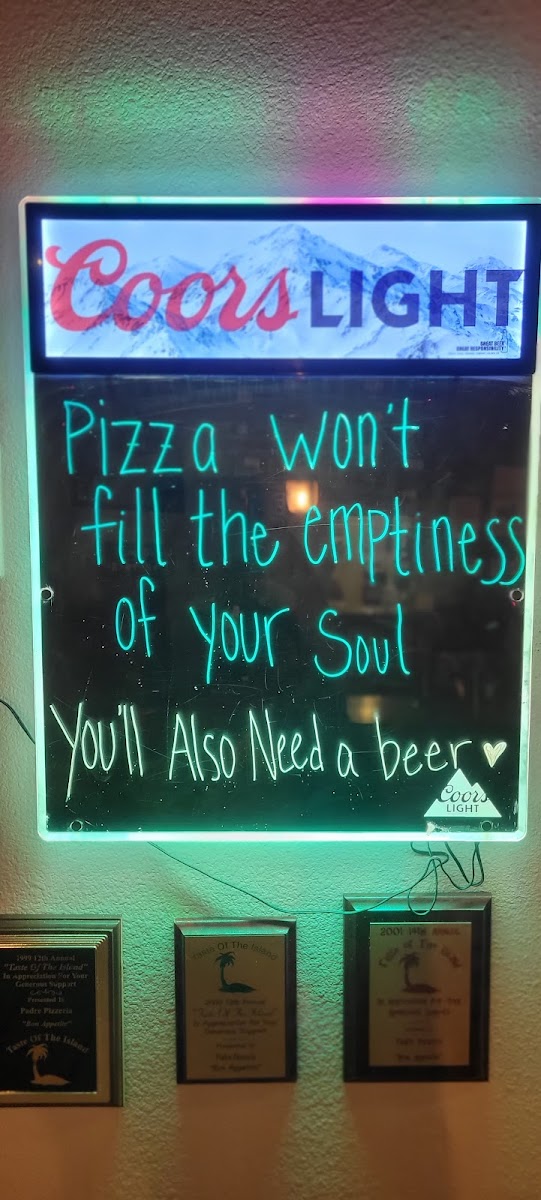 Coors LIGHT
GREAT BEER
GREAT RESPONSIBILITY
Pizza won't
fill the emptiness
of your Soul
You'll Also Need a beer
Coors
LIGHT
1999 12th Annual
"Taste Of The Island"
In Appreciation For Your
Generous Support
Presented To
Padre Pizzeria
"Bon Appetite"
Taste Of The Island
Taste Of The Island
Annual
"Taste Of The Island"
In Appreciation For Your
Generous Support
Presented To
"Bon Appetite"
2001 14th ANNUAL
Taste of The Island
In Appreciation For Your
Generous Support
"Bon Appetite"